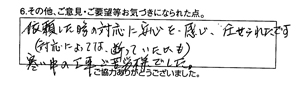 6.その他、ご意見・ご要望等お気づきになられた点。
依頼した時の対応に安心を感じ、任せられたです
(対応によっては、断っていたかも)
寒い中の工事ご苦労様でした。
ご協力ありがとうございました。